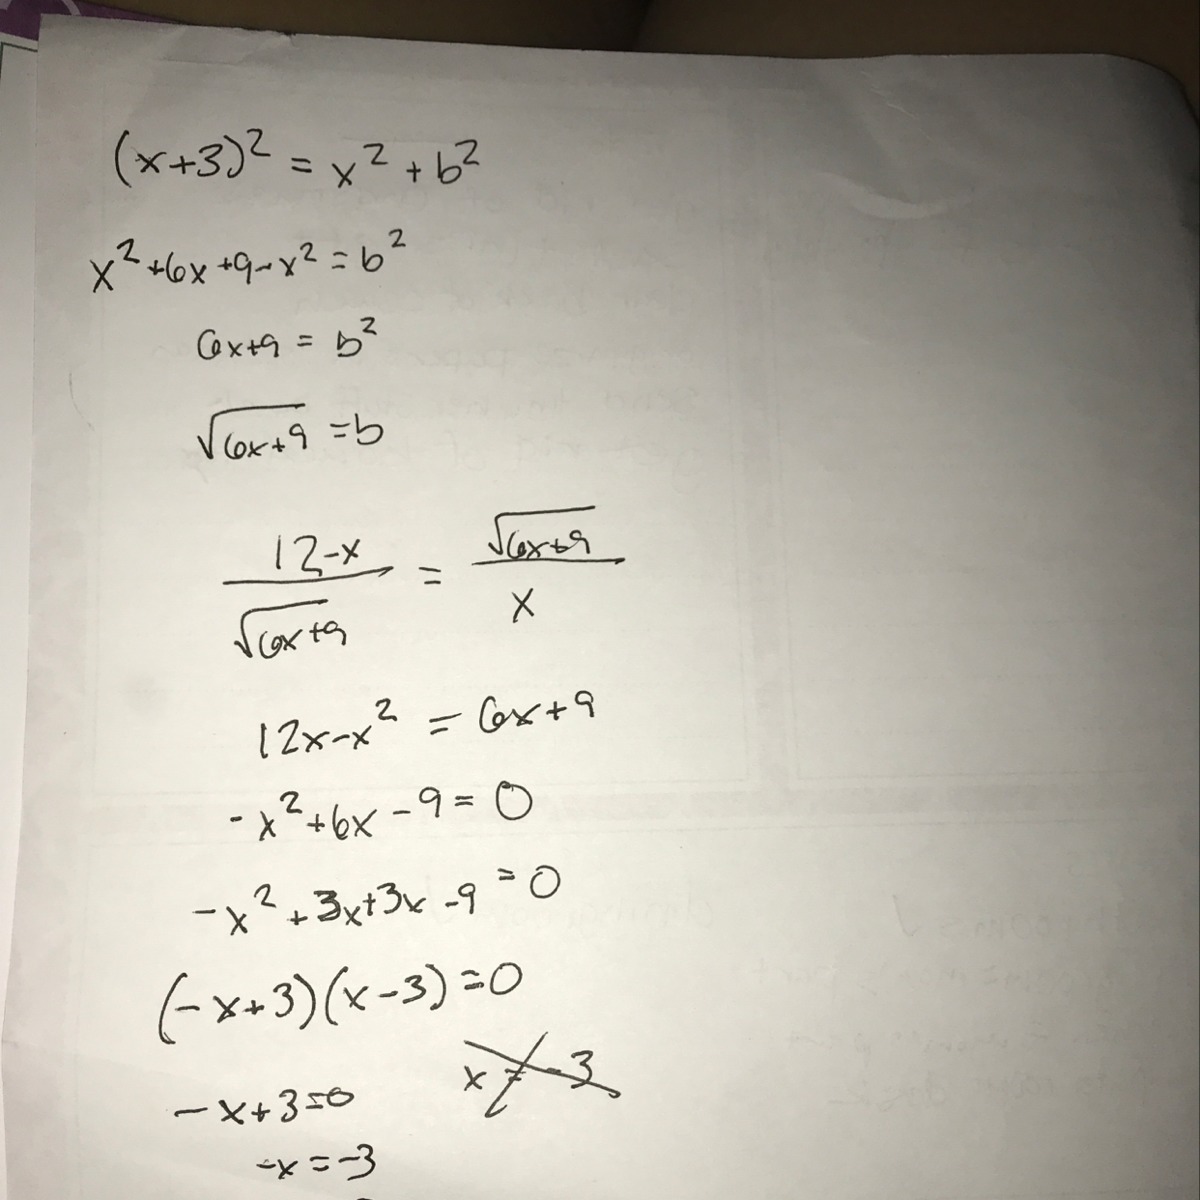 (x+3)² = x² + b²
x²+6x+9-x² = b²
6x+9 = b²
√(6x+9) = b
(12-x)/√(6x+9) = √(6x+9)/x
12x-x² = 6x+9
-x²+6x-9 = 0
-x²+3x+3x-9 = 0
(-x+3)(x-3) = 0
-x+3=0
-x = -3